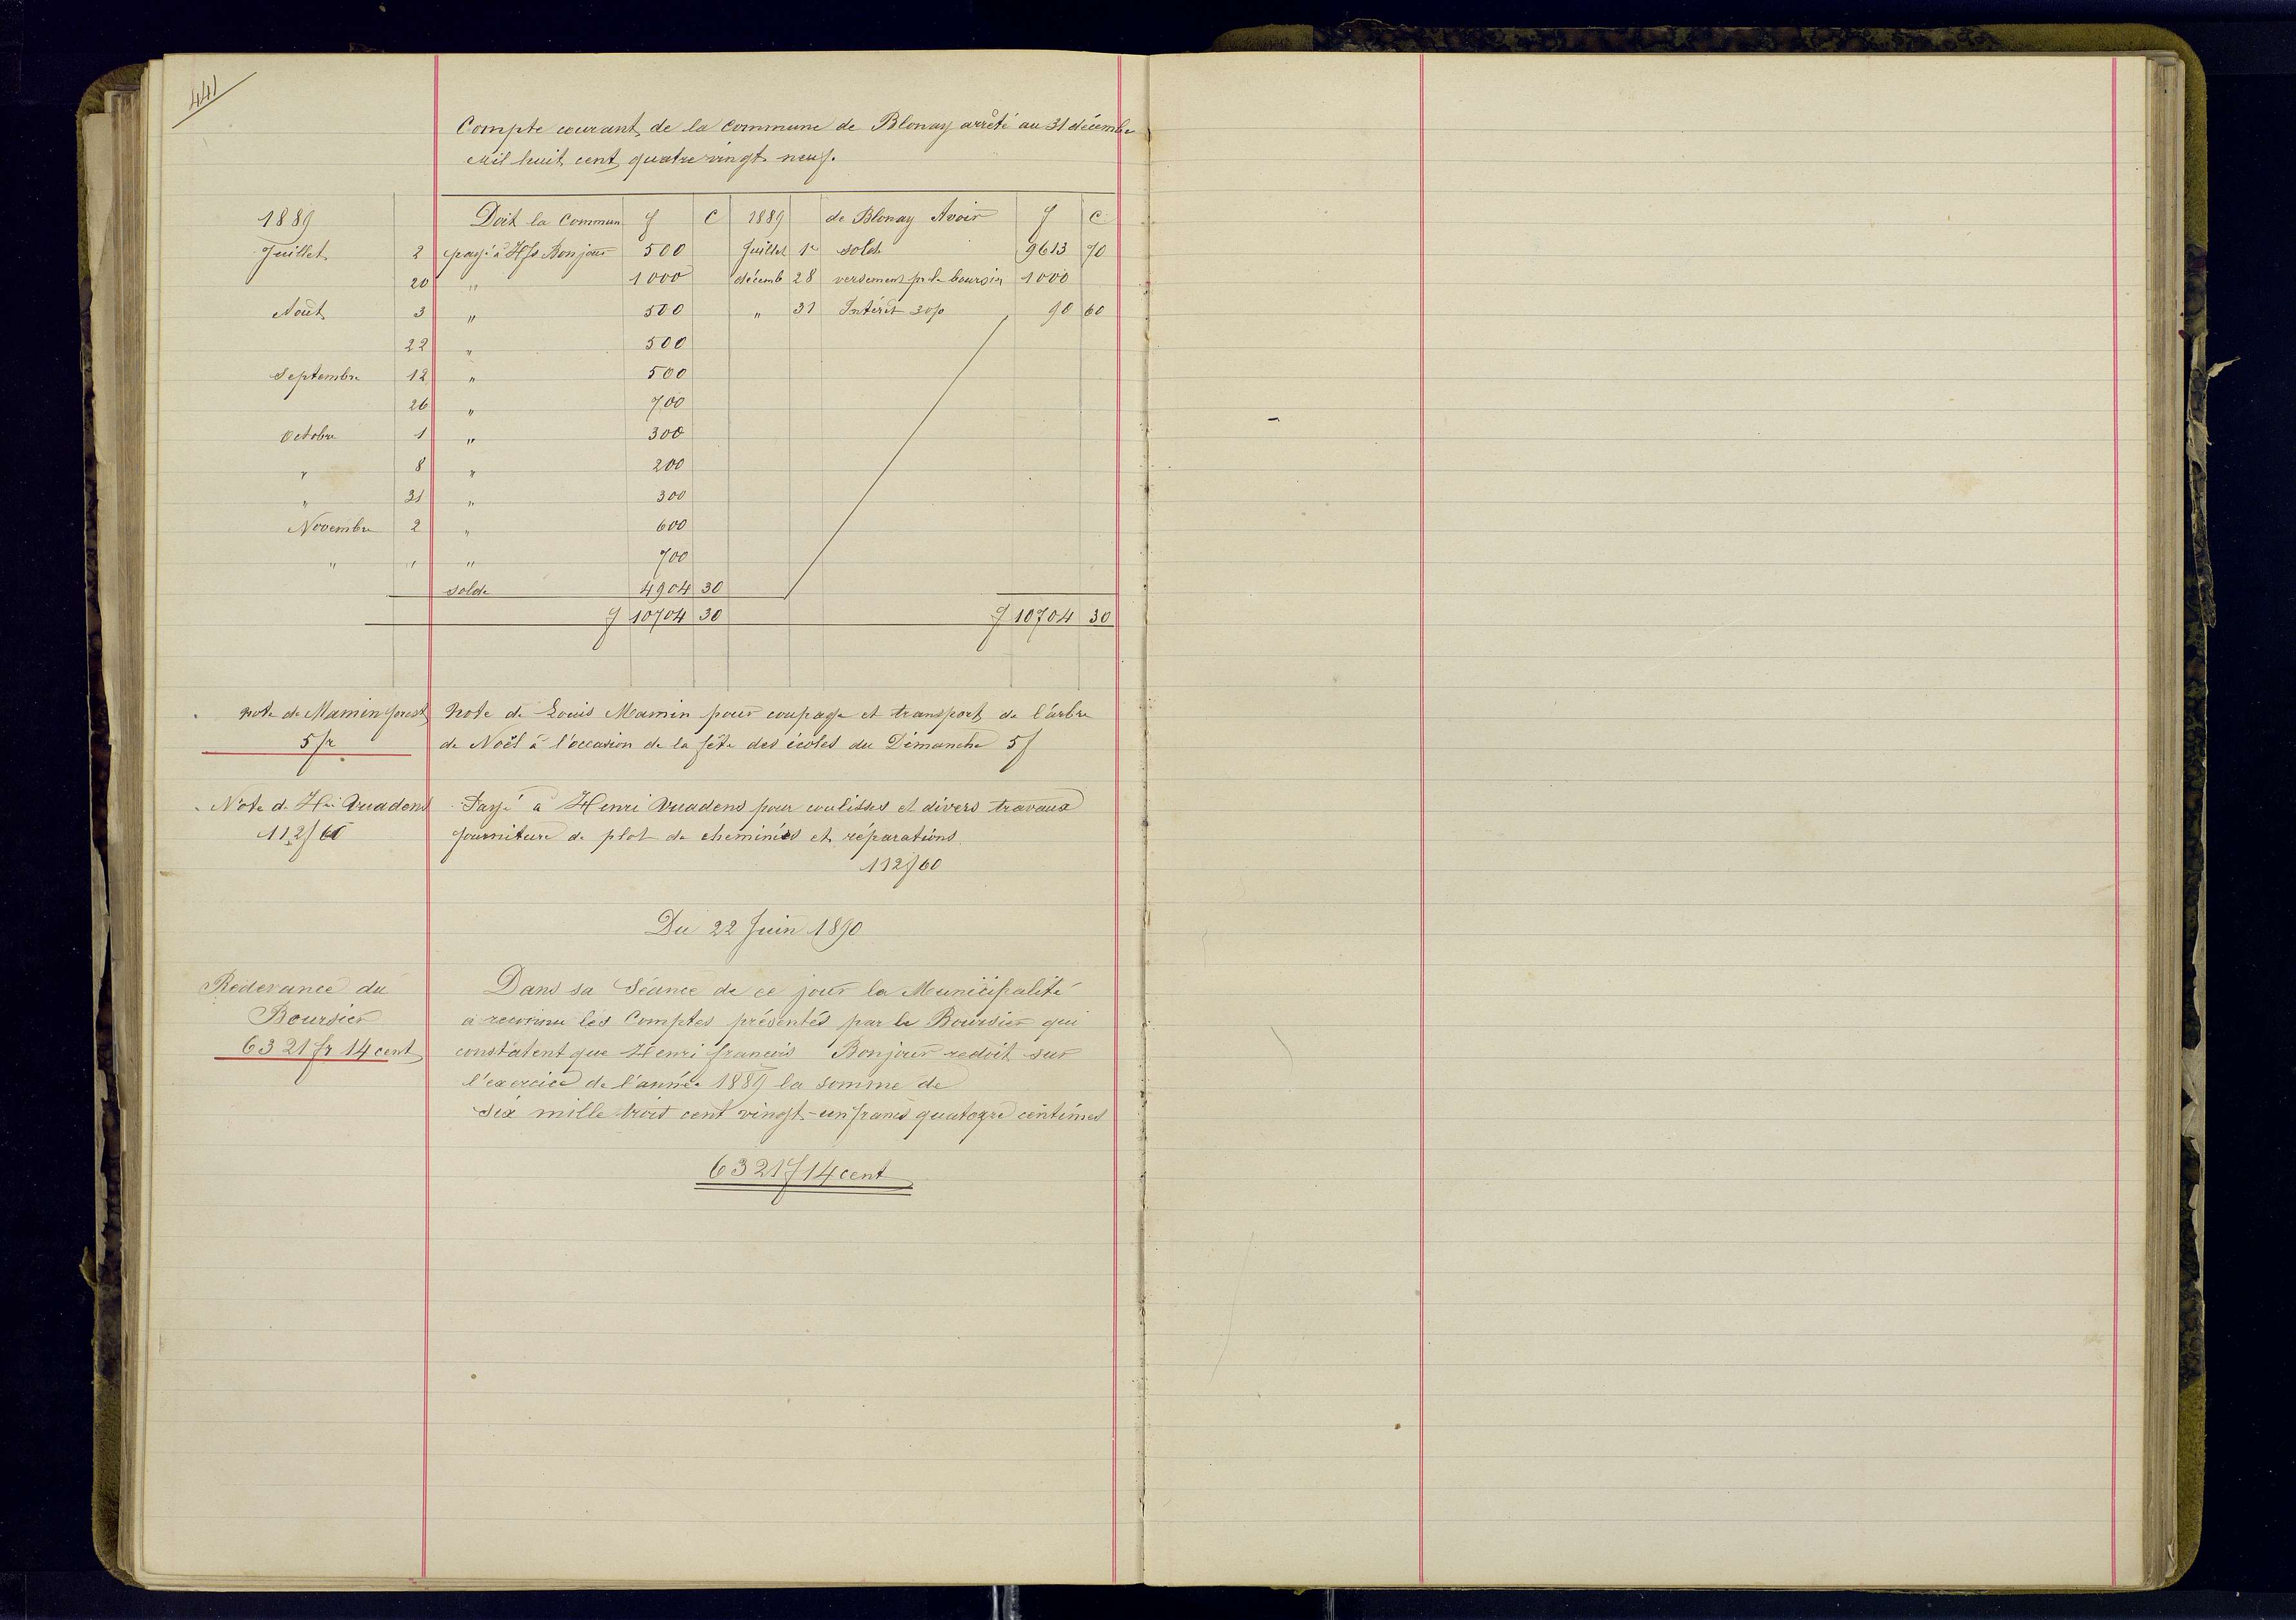 441
Compte courant de la Commune de Blonay arrêté au 31 décembre
mil huit cent quatre vingt neuf.
1889 Doit la Commun f C 1889 de Blonay Avoir f C
Juillet 2 payé à H fs Bonjour 500 Juillet 1er solde 9613 70
20 " 1000 décemb 28 versement pr le boursier 1000
Août 3 " 500 " 31 Intérêt 3 o/o 90 60
22 " 500
Septembre 12 " 500
26 " 700
Octobre 1 " 300
" 8 " 200
" 31 " 300
Novembre 2 " 600
" " " 700
solde 4904 30
f 10704 30 f 10704 30
note de Mamin forest
5 fr
Note de Louis Mamin pour coupage et transport de l'arbre
de Noël à l'occasion de la fête des écoles du Dimanche 5 f
Note de Hri Vuadens
112 f 60
Payé à Henri Vuadens pour coulisses et divers travaux
fourniture de plot de cheminées et réparations.
112 f 60
Du 22 Juin 1890
Redevance du
Boursier
6321 fr 14 cent
Dans sa Séance de ce jour la Municipalité
a reconnu les Comptes présentés par le Boursier qui
constatent que Henri francois Bonjour redoit sur
l'exercice de l'année 1889 la somme de
Six mille trois cent vingt-un francs quatorze centimes
6321 f 14 cent